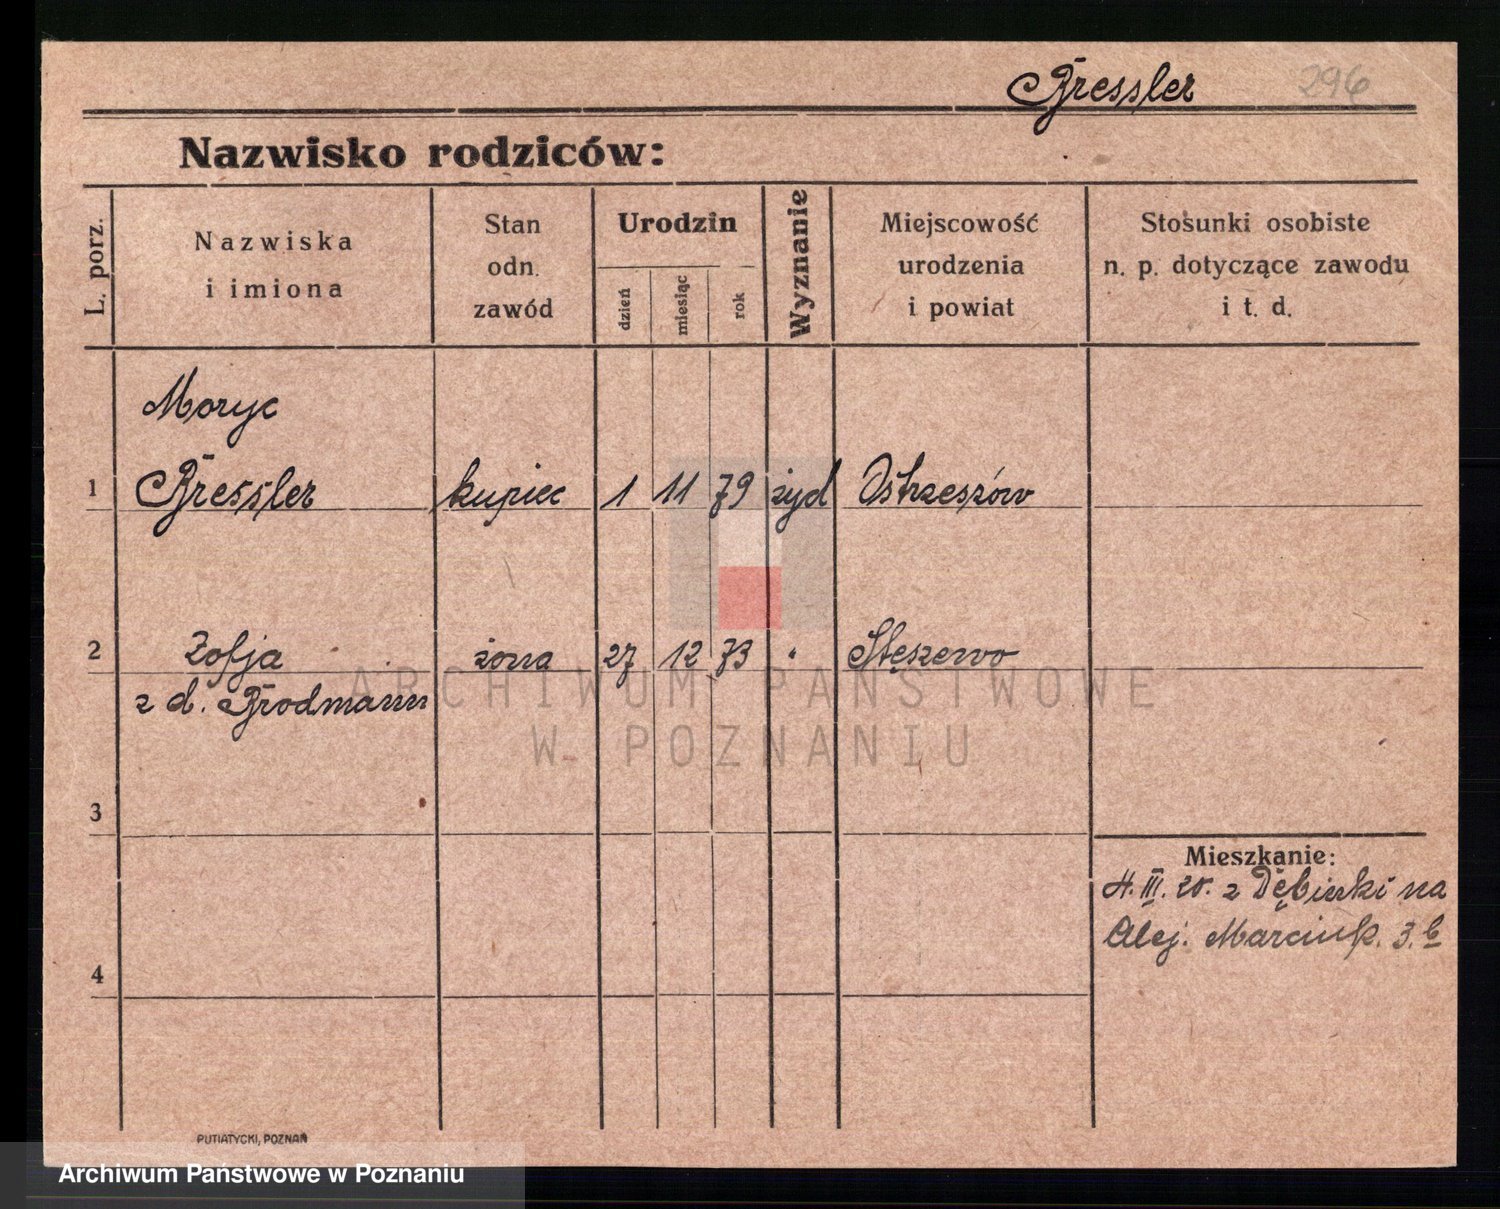 Bressler 296
Nazwisko rodziców:
L. porz.
Nazwiska
i imiona
Stan
odn.
zawód
Urodzin
dzień
miesiąc
rok
Wyznanie
Miejscowość
urodzenia
i powiat
Stosunki osobiste
n. p. dotyczące zawodu
i t. d.
Moryc
1 Bressler kupiec 1 11 79 żyd Ostrzeszów
2 Zofja żona 27 12 73 " Stęszewo
z d. Brodmann
3
Mieszkanie:
4. III. 20. z Dębinki na
Alej. Marcink. 3.b
4
PUTIATYCKI, POZNAŃ
ARCHIWUM PAŃSTWOWE
W POZNANIU
Archiwum Państwowe w Poznaniu